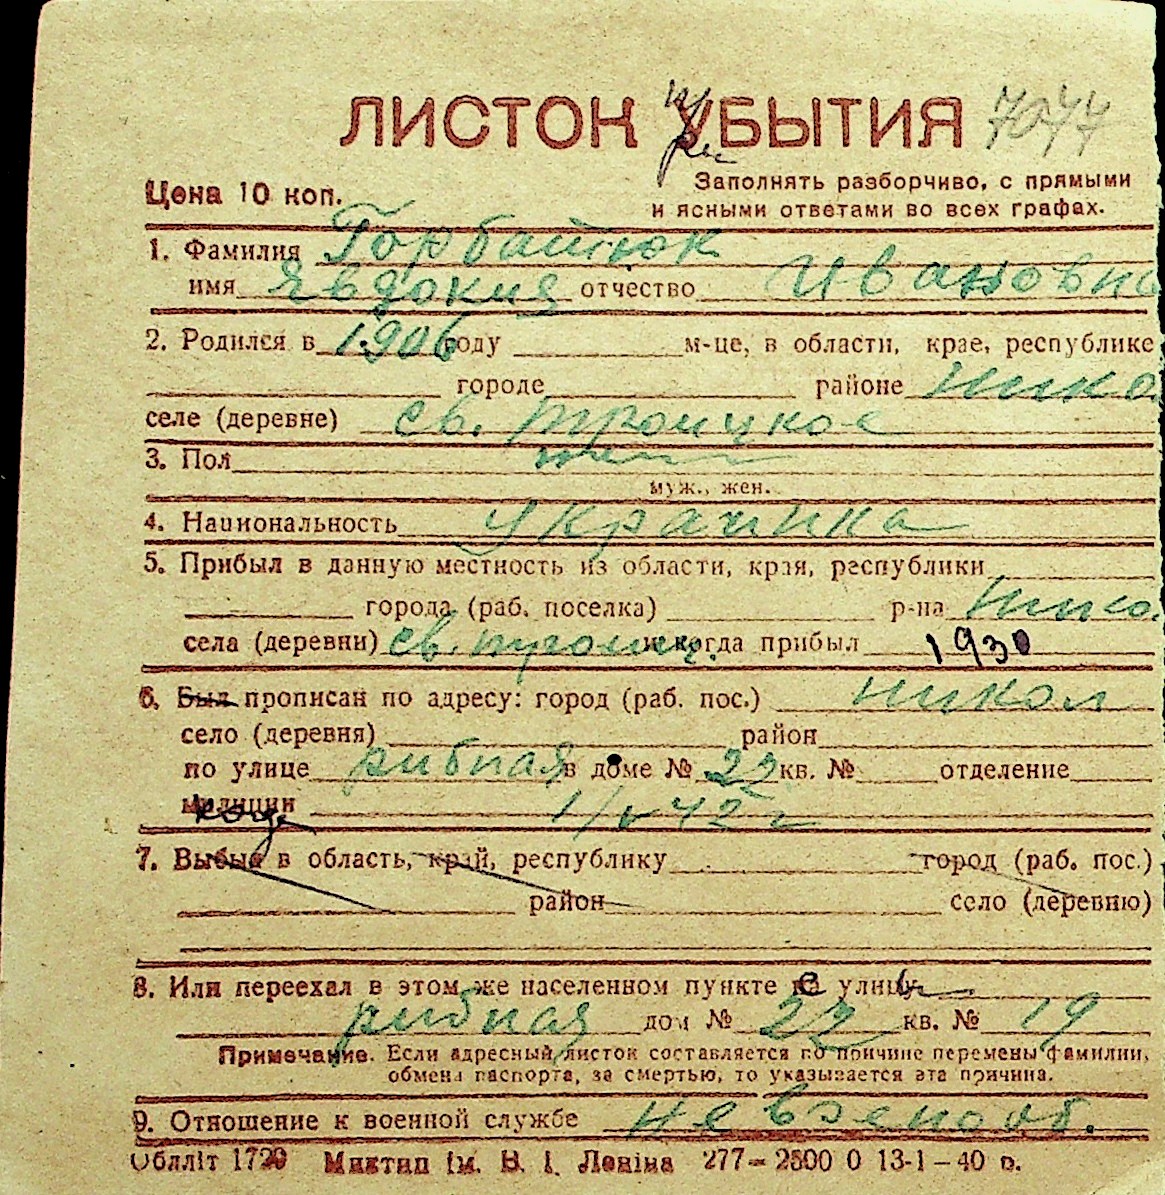 ЛИСТОК УБЫТИЯ 7077
при
Цена 10 коп.
Заполнять разборчиво, с прямыми
и ясными ответами во всех графах.
1. Фамилия Горбатюк
имя Явдокия отчество Ивановна
2. Родился в 1906 году м-це, в области, крае, республике
городе районе Нико
селе (деревне) св. троицкое
3. Пол жен
муж., жен.
4. Национальность Украинка
5. Прибыл в данную местность из области, края, республики
города (раб. поселка) р-на Нико
села (деревни) св. троицк. и когда прибыл 1930
6. Был прописан по адресу: город (раб. пос.) Никол
село (деревня) район
по улице рибная в доме № 22 кв. № отделение
милиции 42 г
7. Выбыл в область, край, республику город (раб. пос.)
район село (деревню)
8. Или переехал в этом же населенном пункте на улицу
рибная дом № 22 кв. № 19
Примечание. Если адресный листок составляется по причине перемены фамилии,
обмена паспорта, за смертью, то указывается эта причина.
9. Отношение к военной службе не взенооб.
Облліт 1720 Миктип ім. В. І. Леніна 277-2500 0 13-1-40 р.